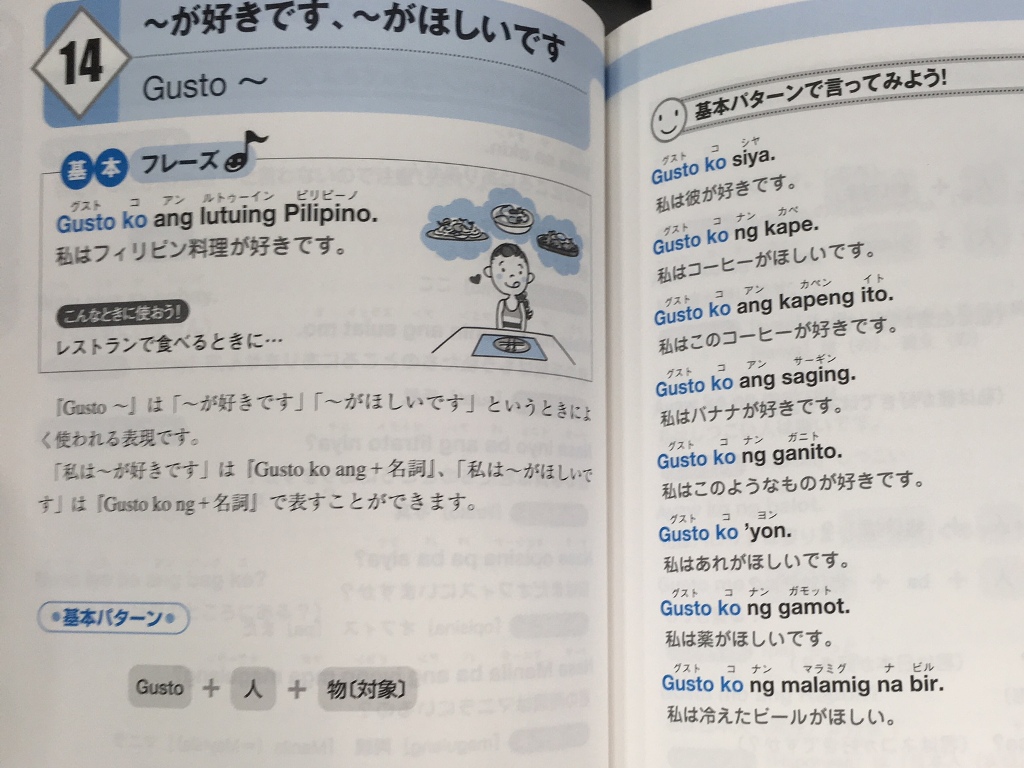 14
～が好きです、～がほしいです
Gusto ～
基本 フレーズ
グスト コ アン ルトゥーイン ピリピーノ
Gusto ko ang lutuing Pilipino.
私はフィリピン料理が好きです。
こんなときに使おう!
レストランで食べるときに…
『Gusto ～』は「～が好きです」「～がほしいです」というときによ
く使われる表現です。
「私は～が好きです」は『Gusto ko ang＋名詞』、「私は～がほしいで
す」は『Gusto ko ng＋名詞』で表すことができます。
基本パターン
Gusto ＋ 人 ＋ 物〔対象〕
基本パターンで言ってみよう!
グスト コ シヤ
Gusto ko siya.
私は彼が好きです。
グスト コ ナン カペ
Gusto ko ng kape.
私はコーヒーがほしいです。
グスト コ アン カペン イト
Gusto ko ang kapeng ito.
私はこのコーヒーが好きです。
グスト コ アン サーギン
Gusto ko ang saging.
私はバナナが好きです。
グスト コ ナン ガニト
Gusto ko ng ganito.
私はこのようなものが好きです。
グスト コ ヨン
Gusto ko 'yon.
私はあれがほしいです。
グスト コ ナン ガモット
Gusto ko ng gamot.
私は薬がほしいです。
グスト コ ナン マラミグ ナ ビル
Gusto ko ng malamig na bir.
私は冷えたビールがほしい。